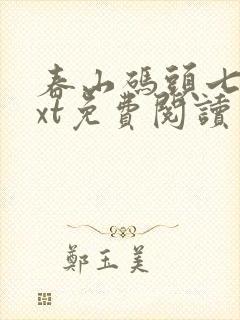 春山碼頭七
xt免費閱讀
鄭玉美